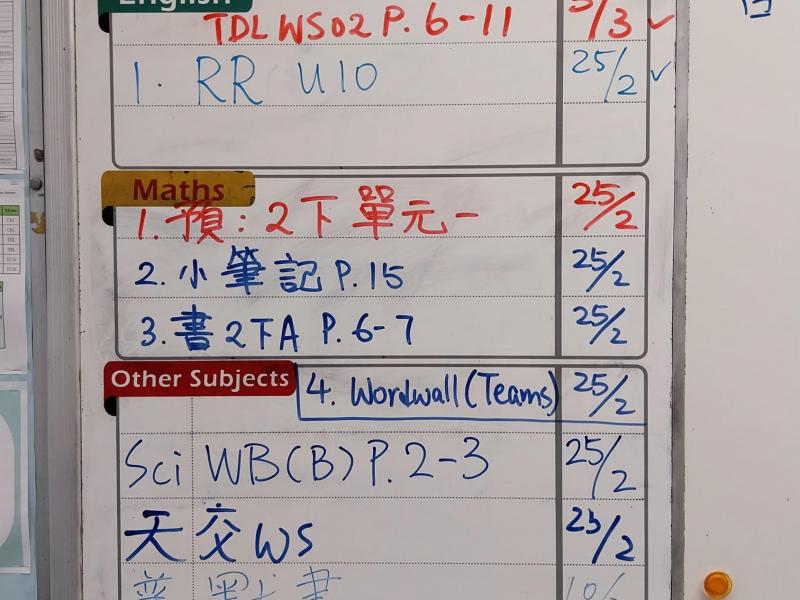 English
TDL WS02 P. 6-11 5/3 ✓
1. RR U10 25/2 ✓
Maths
1. 預: 2下 單元一 25/2
2. 小筆記 P.15 25/2
3. 書2下A P.6-7 25/2
Other Subjects 4. Wordwall (Teams) 25/2
Sci WB(B) P.2-3 25/2
天 交WS 25/2